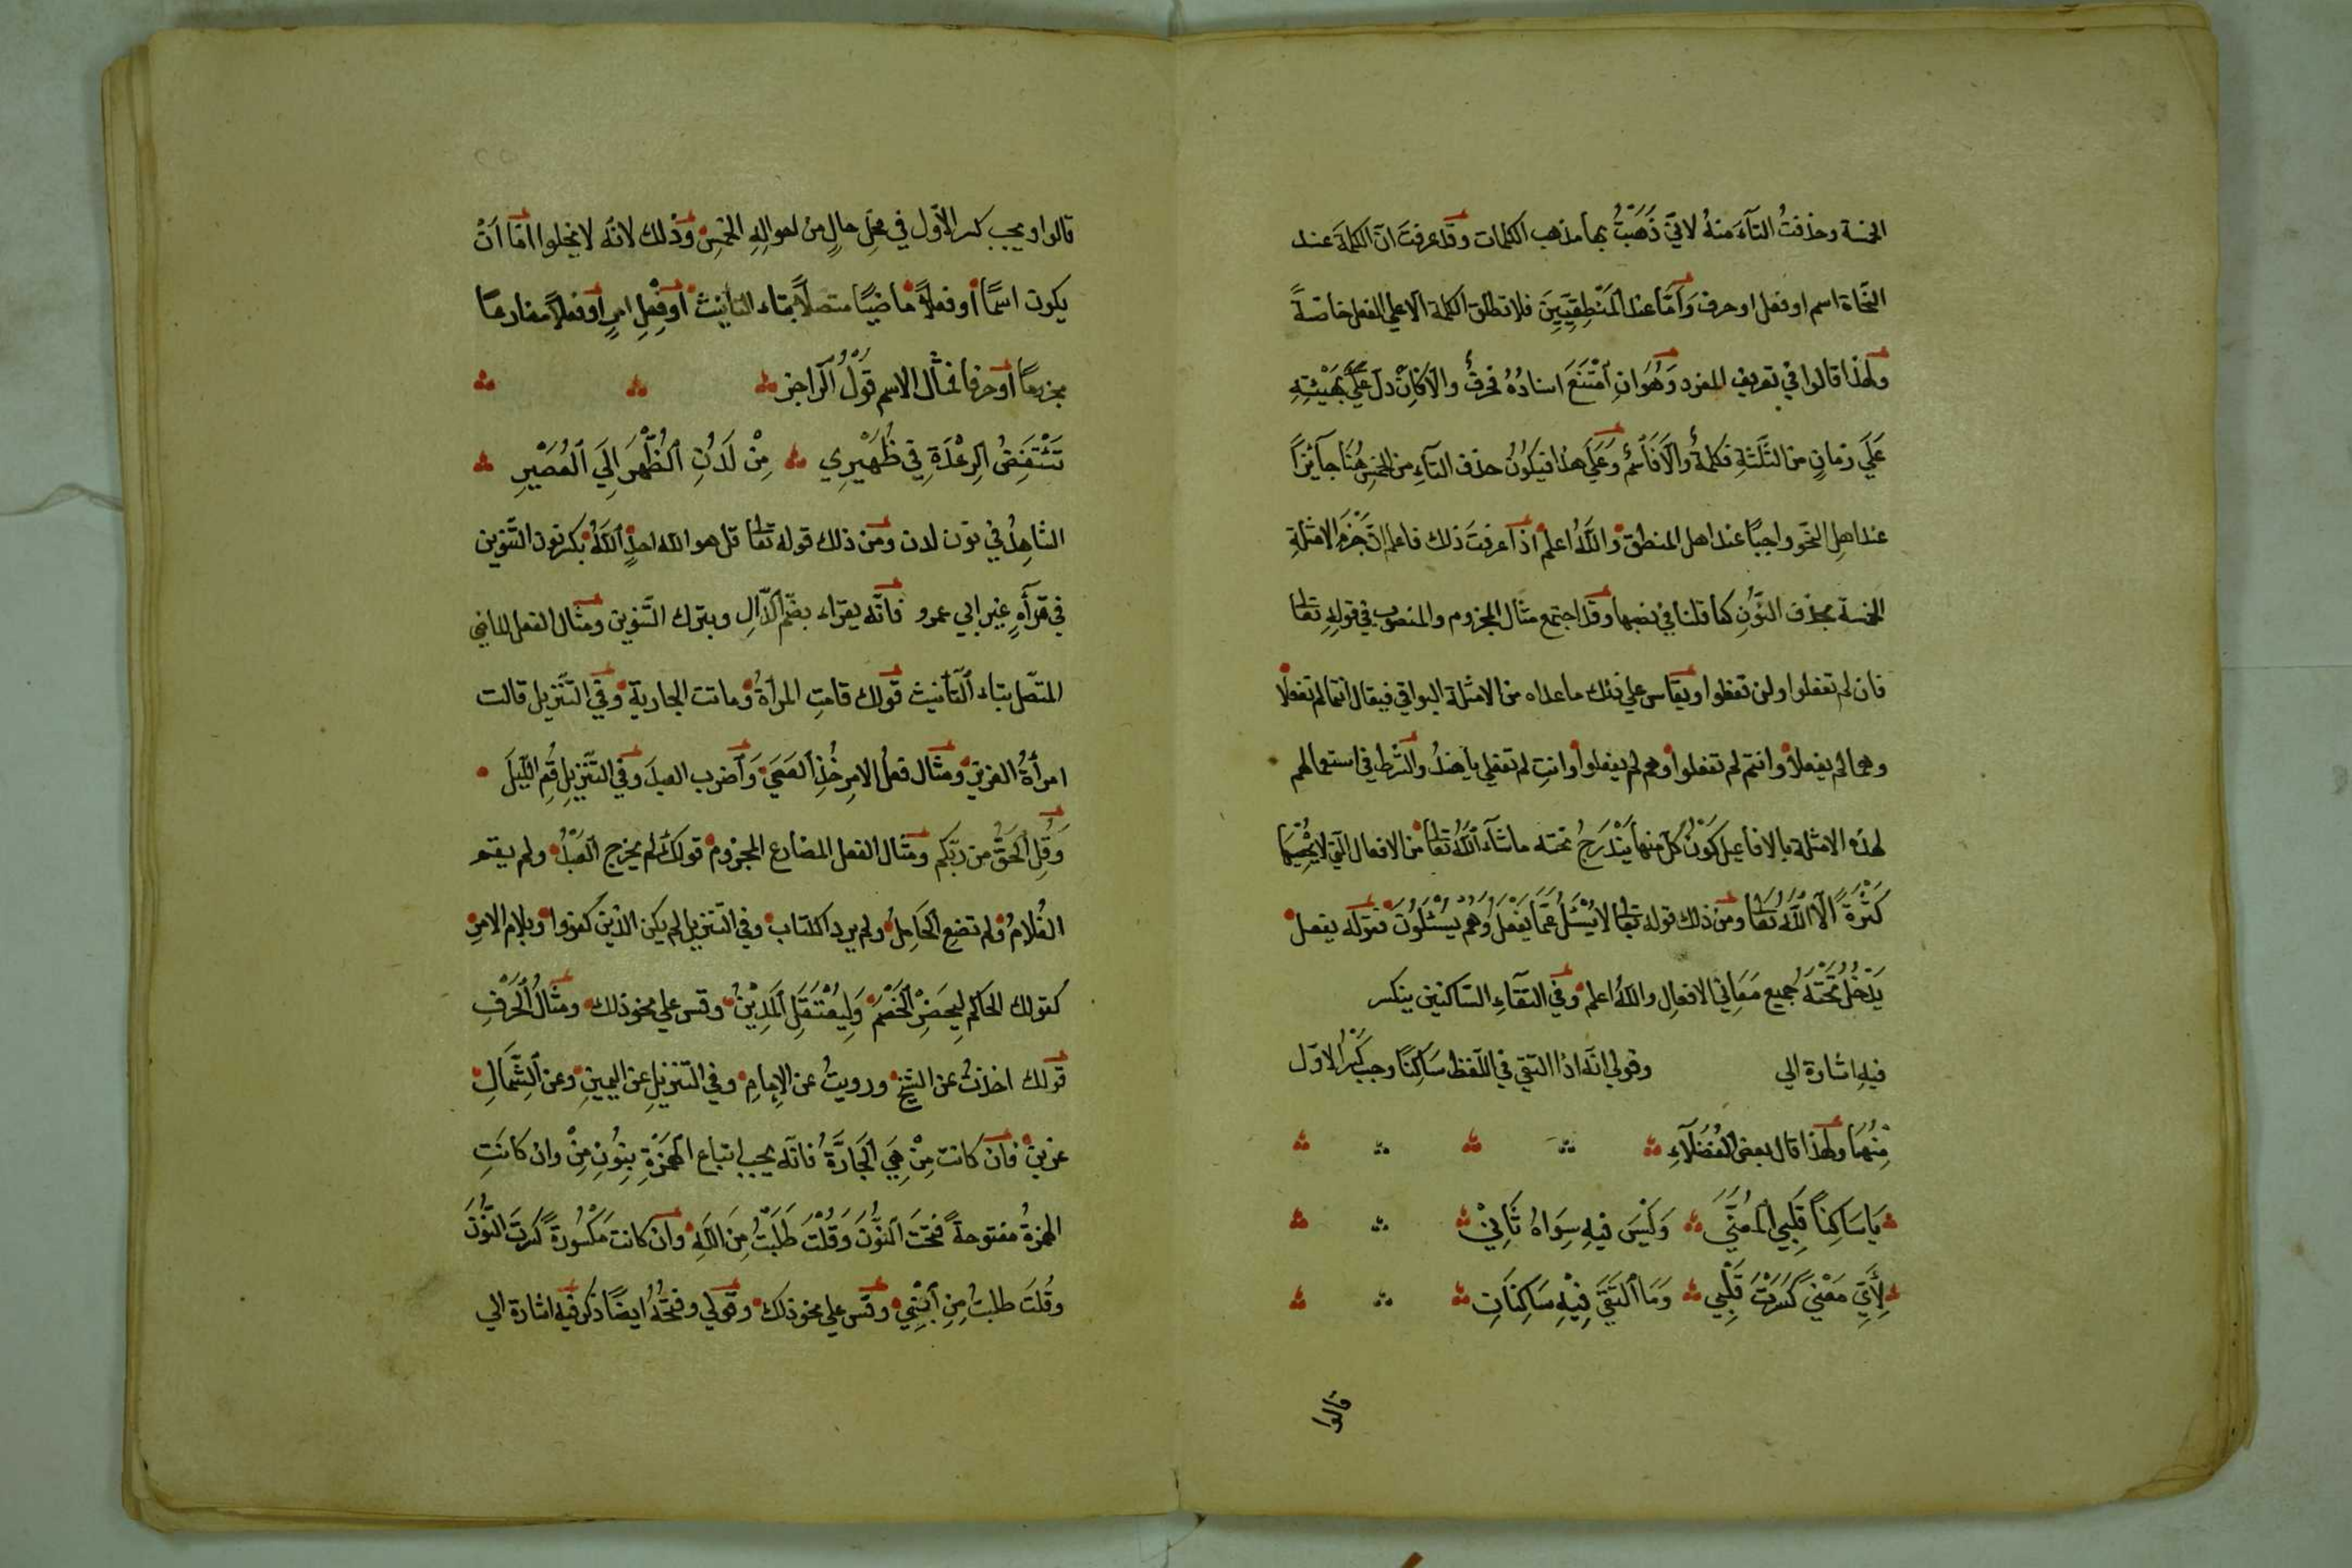 الخمسة وحذفتُ التآءَ منهُ لانّي ذَهَبْتُ بها مذهب الكلمات وقد عرفتَ انّ الكلمةَ عند
النّحاة اسم او فعل او حرف وَامّا عند المَنْطِقِيّينَ فلا تطلق الكلمة الّا علي الفعل خاصّةً
ولهذا قالوا في تعريف المفرد وَهُوَ ان اَمْتَنَعَ اسنادُهُ فحرفٌ والّا فاِنْ دلّ علي بهَيْئتِهِ
عَلَي زمانٍ من الثّلثةِ فكلمةٌ والّا فَاْسمٌ وَعَلَي هذا فيكُونُ حذف التآءِ من الخمسِ هُنَا جآئزاً
عند اهلِ النّحو واجبًا عند اهل المنطق والله اعلم اذا عرفتَ ذلك فاعلم انّ جَزْمَ الامثلةِ
الخمسة بحذف النُّونِ كما قلنا في نصبها وقد اجتمع مثال المجزوم والمنصوب في قولهِ تعا
فان لم تفعلوا ولن تفعلوا ويقاس علي ذلك ما عداه من الامثلة البواقي فيقال انتما لم تفعلا
وهما لم يفعلا وانتم لم تفعلوا وهم لم يفعلوا وانتِ لم تفعلي يا هندُ والشّرط في استعمالهم
لهذه الامثلة بالافاعيل كَوْنُ كلّ منها يَنْدَرِجُ تحته ماشآء اللهُ تعا من الافعال الّتي لا يُحْصِيهَا
كَثْرَةً الّا اللهُ تعَا ومن ذلك قوله تعا لا يُسْئَلُ عَمّا يَفْعَلُ وَهُم يُسْئَلُونَ فقوله يفعل
يَدْخُلُ تَحْتَهُ جميع مَعَاني الافعالِ والله اعلم وفي التقآءِ السّاكنين ينكسر
فيهِ اشارة الي وقولي انّه اذا التقي في اللّفظ سَاكِنًا وجب كَسْرُ الاوّل
مِنْهُمَا ولهذا قال بعض الفُضَلَآءِ
يَا سَاكِناً قَلبِي المُعَنَّي وَلَيْسَ فيهِ سِوَاهُ ثَانِيْ
لِأَيِّ مَعْنيً كَسَرْتَ قَلْبِي وَمَا الْتَقَي فِيْهِ سَاكِنَانِ
قالوا
قالوا ويجب كسر الاّول في محلّ حالٍ من احوالِهِ الخمسِ وذلك لانّه لا يخلوا امّا اَنْ
يكون اسمًا أو فعلاً ماضيًا متصلاً بتاء التأنيث أو فِعْلِ امرٍ أو فعلاً مضارعًا
مجزومًا أو حرفا فمثال الاسم قَوْلُ الرّاجز
تَنْتَفِضُ الرِعْدَةِ فِي ظُهَيْرِي مِنْ لَدُنِ الظُّهْرَ اِلَي العُصَيْرِ
الشاهِدُ في نون لدن ومن ذلك قوله تعا قل هو الله احدٌ الله بكسر نون التّنوين
في قرأهِ غير ابي عمرو فانّه يقراء بضّم الدّالِ وبترك التّنوين ومثال الفعل الماضي
المتّصل بتاء التّأنيث قولك قامتِ المرأةُ وماتت الجارية وفي التّنزيل قالت
امرأةُ العزيز ومثال فعلُ الامرِ خُذِ العَصَيَ وَاَضرب العبدَ وفي التّنزيلِ قُمِ الّليلَ
وَقُلِ الْحَقُّ من ربّكم ومثال الفعل المضارع المجزوم قولك لم يخرج العَبْدُ ولم يقم
الغُلامُ ولم تضعِ الحَامِلُ ولم يرد الكتاب وفي التّنزيل لم يكن الذّين كفروا وبلام الامرِ
كقولك الحاكم لِيحضرِ الخَصْمُ وَلِيُعْتَقَلِ المَدِيْنُ وقس علي نحو ذلك ومثالُ الحَرْفِ
قولك اخذتُ عن الشيخِ ورويتُ عن الإمامِ وفي التّنزيلِ عن اليمينِ وعن الشِّمَالِ
عزين فان كانت مِنْ هِيَ الجَارّةُ فانّه يجب اتباع الهمَزةِ بِنُونِ مِنْ وان كانَتِ
الهمزةُ مفتوحةً فتحتَ النّوُنَ وَقُلْتَ طَلَبْتُ مِنَ اللهِ وان كانت مَكْسُورةً كسرتَ النّوُنَ
وقُلتَ طلبتُ مِنِ اَبْنِيْ وقس علي نحو ذلك وقولي وفتحُهُ ايضًا ذكر فيه اشارة الي